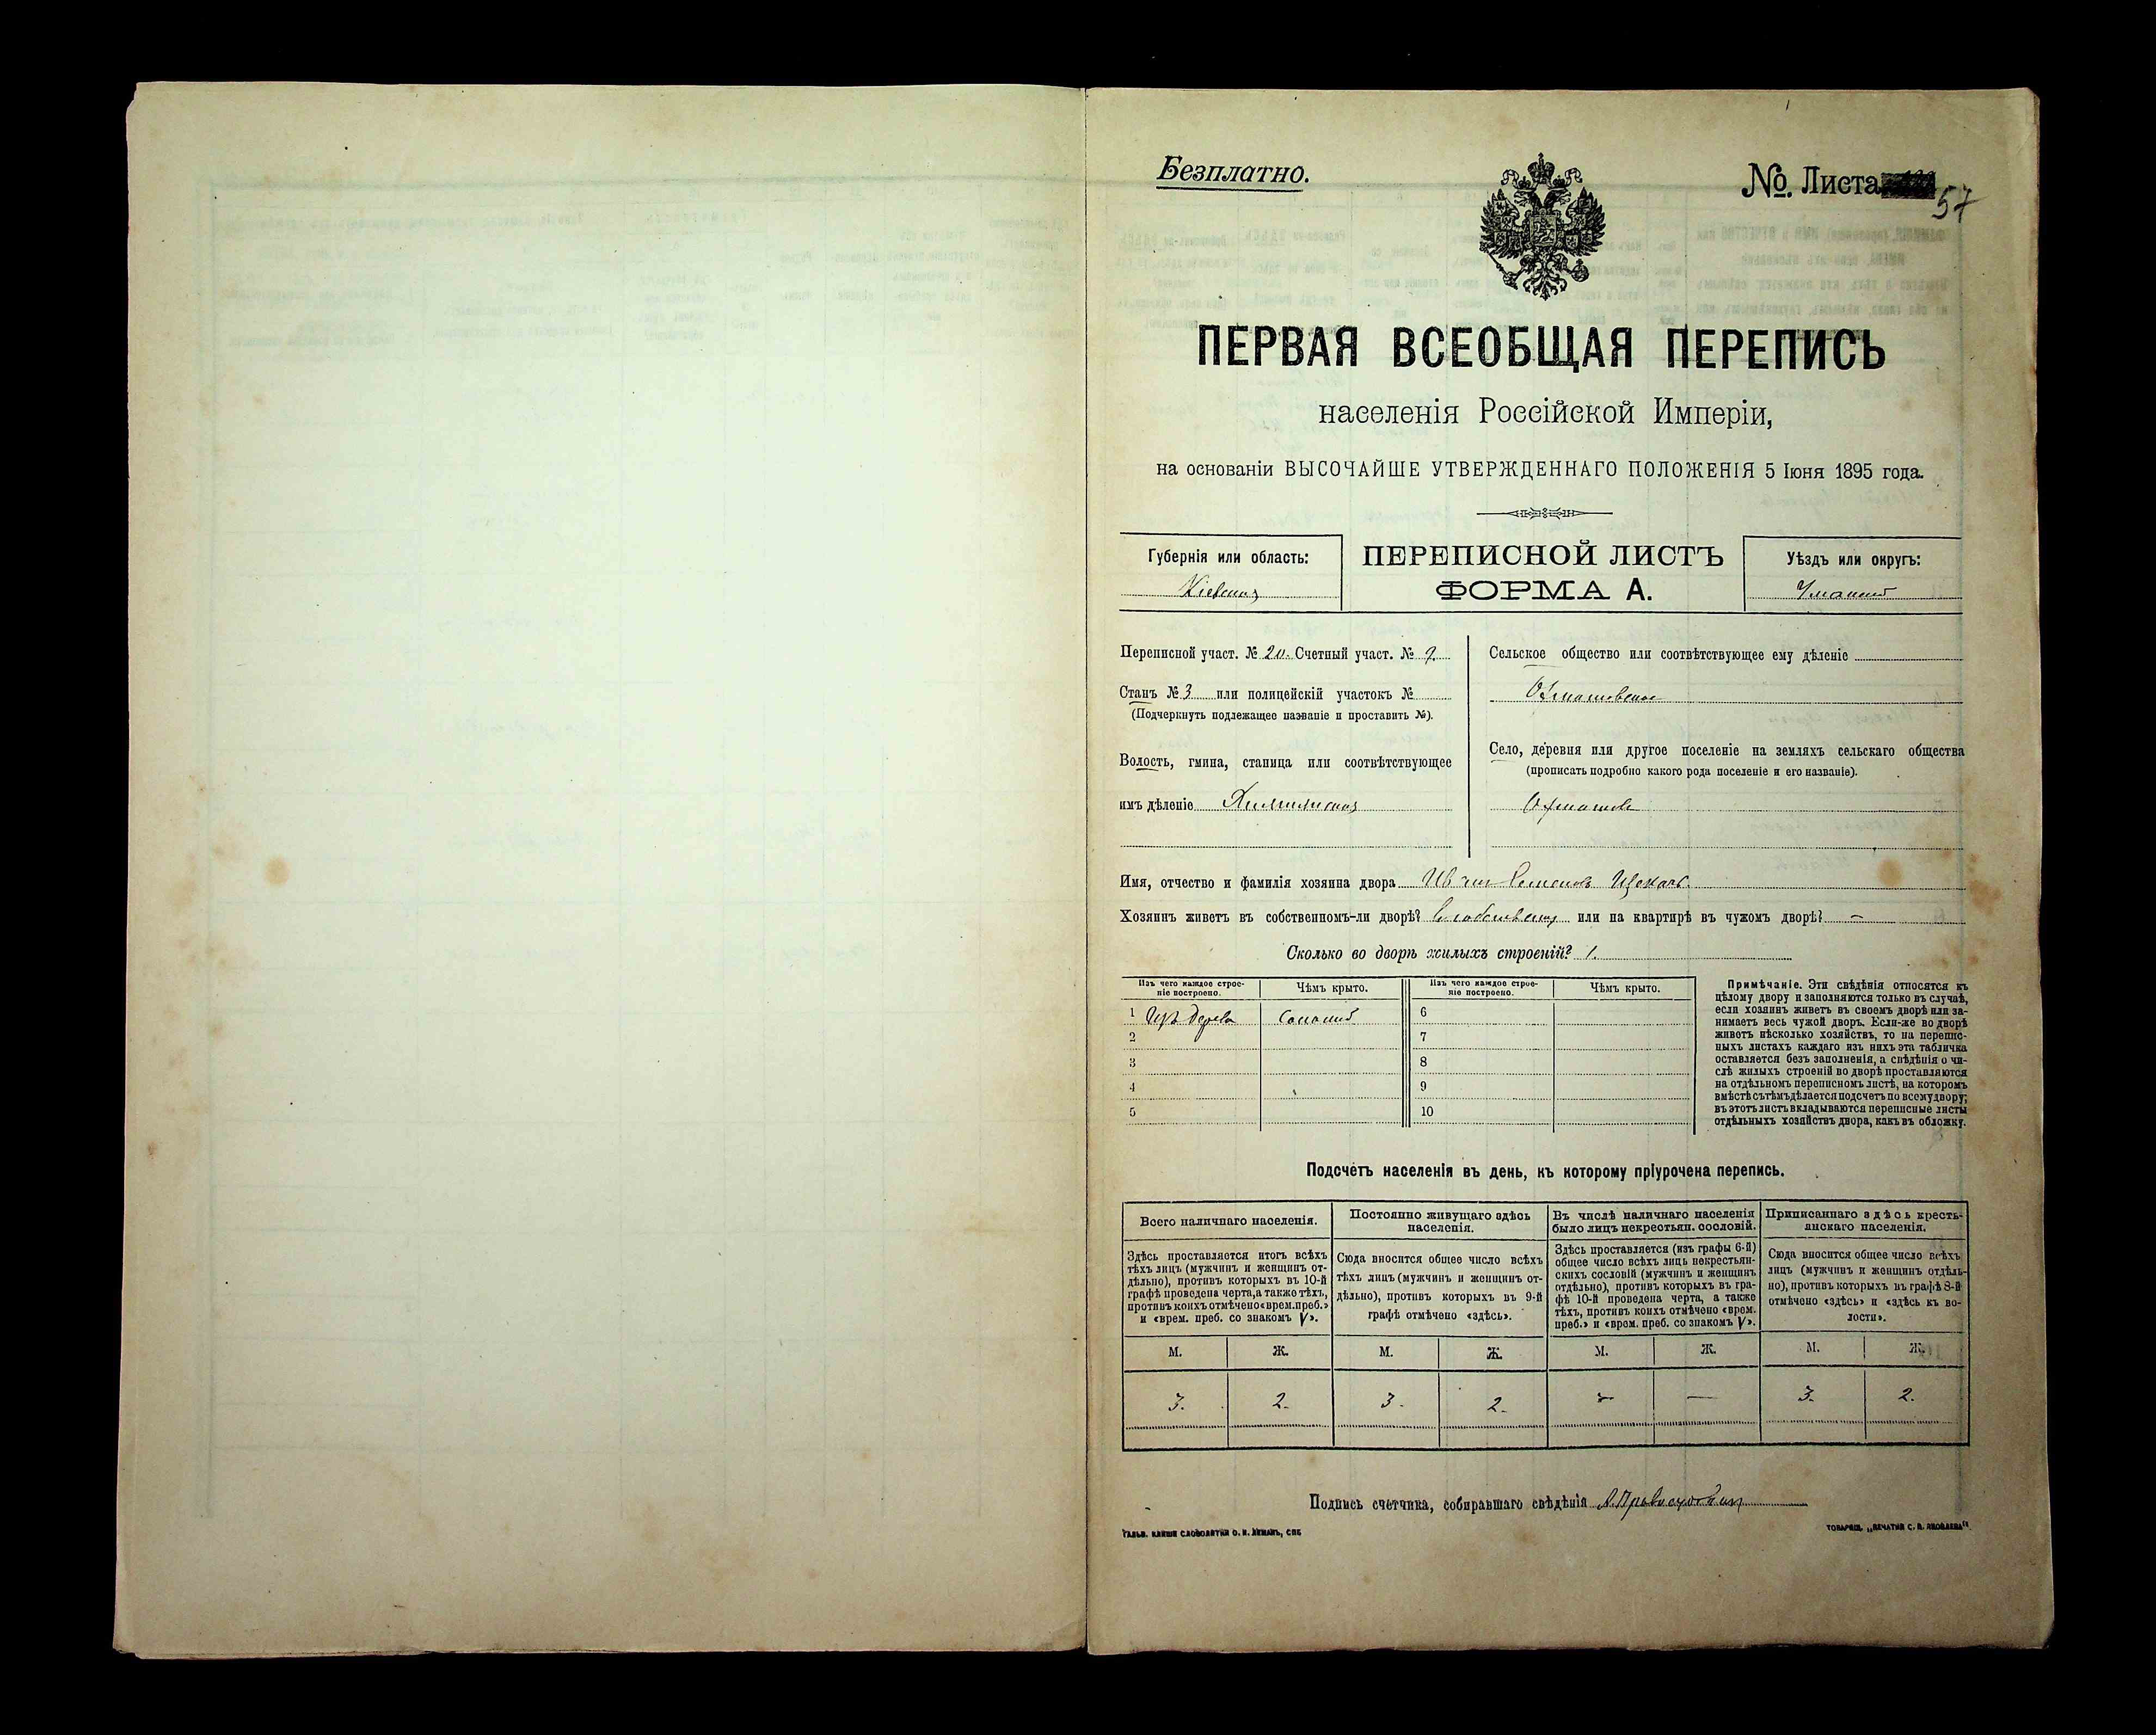 Безплатно.
№. Листа 57
ПЕРВАЯ ВСЕОБЩАЯ ПЕРЕПИСЬ
населенія Россійской Имперіи,
на основаніи ВЫСОЧАЙШЕ УТВЕРЖДЕННАГО ПОЛОЖЕНІЯ 5 Іюня 1895 года.
Губернія или область:
Кіевская
ПЕРЕПИСНОЙ ЛИСТЪ
ФОРМА А.
Уѣздъ или округъ:
Уманскій
Переписной участ. № 20. Счетный участ. № 9.
Станъ № 3 или полицейскій участокъ №
(Подчеркнуть подлежащее названіе и проставить №).
Волость, гмина, станица или соотвѣтствующее
имъ дѣленіе
Сельское общество или соотвѣтствующее ему дѣленіе
Охматовское
Село, деревня или другое поселеніе на земляхъ сельскаго общества
(прописать подробно какого рода поселеніе и его названіе).
Охматовъ
Имя, отчество и фамилія хозяина двора Семеновъ
Хозяинъ живетъ въ собственномъ-ли дворѣ? или на квартирѣ въ чужомъ дворѣ? —
Сколько во дворѣ жилыхъ строеній? 1.
Изъ чего каждое строе-
ніе построено.
Чѣмъ крыто.
Изъ чего каждое строе-
ніе построено.
Чѣмъ крыто.
1 Изъ дерева 6
2 7
3 8
4 9
5 10
Примѣчаніе. Эти свѣдѣнія относятся къ
цѣлому двору и заполняются только въ случаѣ,
если хозяинъ живетъ въ своемъ дворѣ или за-
нимаетъ весь чужой дворъ. Если-же во дворѣ
живетъ нѣсколько хозяйствъ, то на перепис-
ныхъ листахъ каждаго изъ нихъ эта табличка
оставляется безъ заполненія, а свѣдѣнія о чи-
слѣ жилыхъ строеній во дворѣ проставляются
на отдѣльномъ переписномъ листѣ, на которомъ
вмѣстѣ съ тѣмъ дѣлается подсчетъ по всему двору;
въ этотъ листъ вкладываются переписные листы
отдѣльныхъ хозяйствъ двора, какъ въ обложку.
Подсчетъ населенія въ день, къ которому пріурочена перепись.
Всего наличнаго населенія.
Здѣсь проставляется итогъ всѣхъ
тѣхъ лицъ (мужчинъ и женщинъ от-
дѣльно), противъ которыхъ въ 10-й
графѣ проведена черта, а также тѣхъ,
противъ коихъ отмѣчено «врем. преб.»
и «врем. преб. со знакомъ V».
Постоянно живущаго здѣсь
населенія.
Сюда вносится общее число всѣхъ
тѣхъ лицъ (мужчинъ и женщинъ от-
дѣльно), противъ которыхъ въ 9-й
графѣ отмѣчено «здѣсь».
Въ числѣ наличнаго населенія
было лицъ некрестьян. сословій.
Здѣсь проставляется (изъ графы 6-й)
общее число всѣхъ лицъ некрестьян-
скихъ сословій (мужчинъ и женщинъ
отдѣльно), противъ которыхъ въ гра-
фѣ 10-й проведена черта, а также
тѣхъ, противъ коихъ отмѣчено «врем.
преб.» и «врем. преб. со знакомъ V».
Приписаннаго здѣсь кресть-
янскаго населенія.
Сюда вносится общее число всѣхъ
лицъ (мужчинъ и женщинъ отдѣль-
но), противъ которыхъ въ графѣ 8-й
отмѣчено «здѣсь» и «здѣсь къ во-
лости».
М. Ж. М. Ж. М. Ж. М. Ж.
3. 2. 3. 2. — — 3. 2.
Подпись счетчика, собиравшаго свѣдѣнія
ГАЛЬВ. КЛИШЕ СЛОВОЛИТНИ О. И. ЛЕМАНЪ, СПБ
ТОВАРИЩ. „ПЕЧАТНЯ С. П. ЯКОВЛЕВА“.